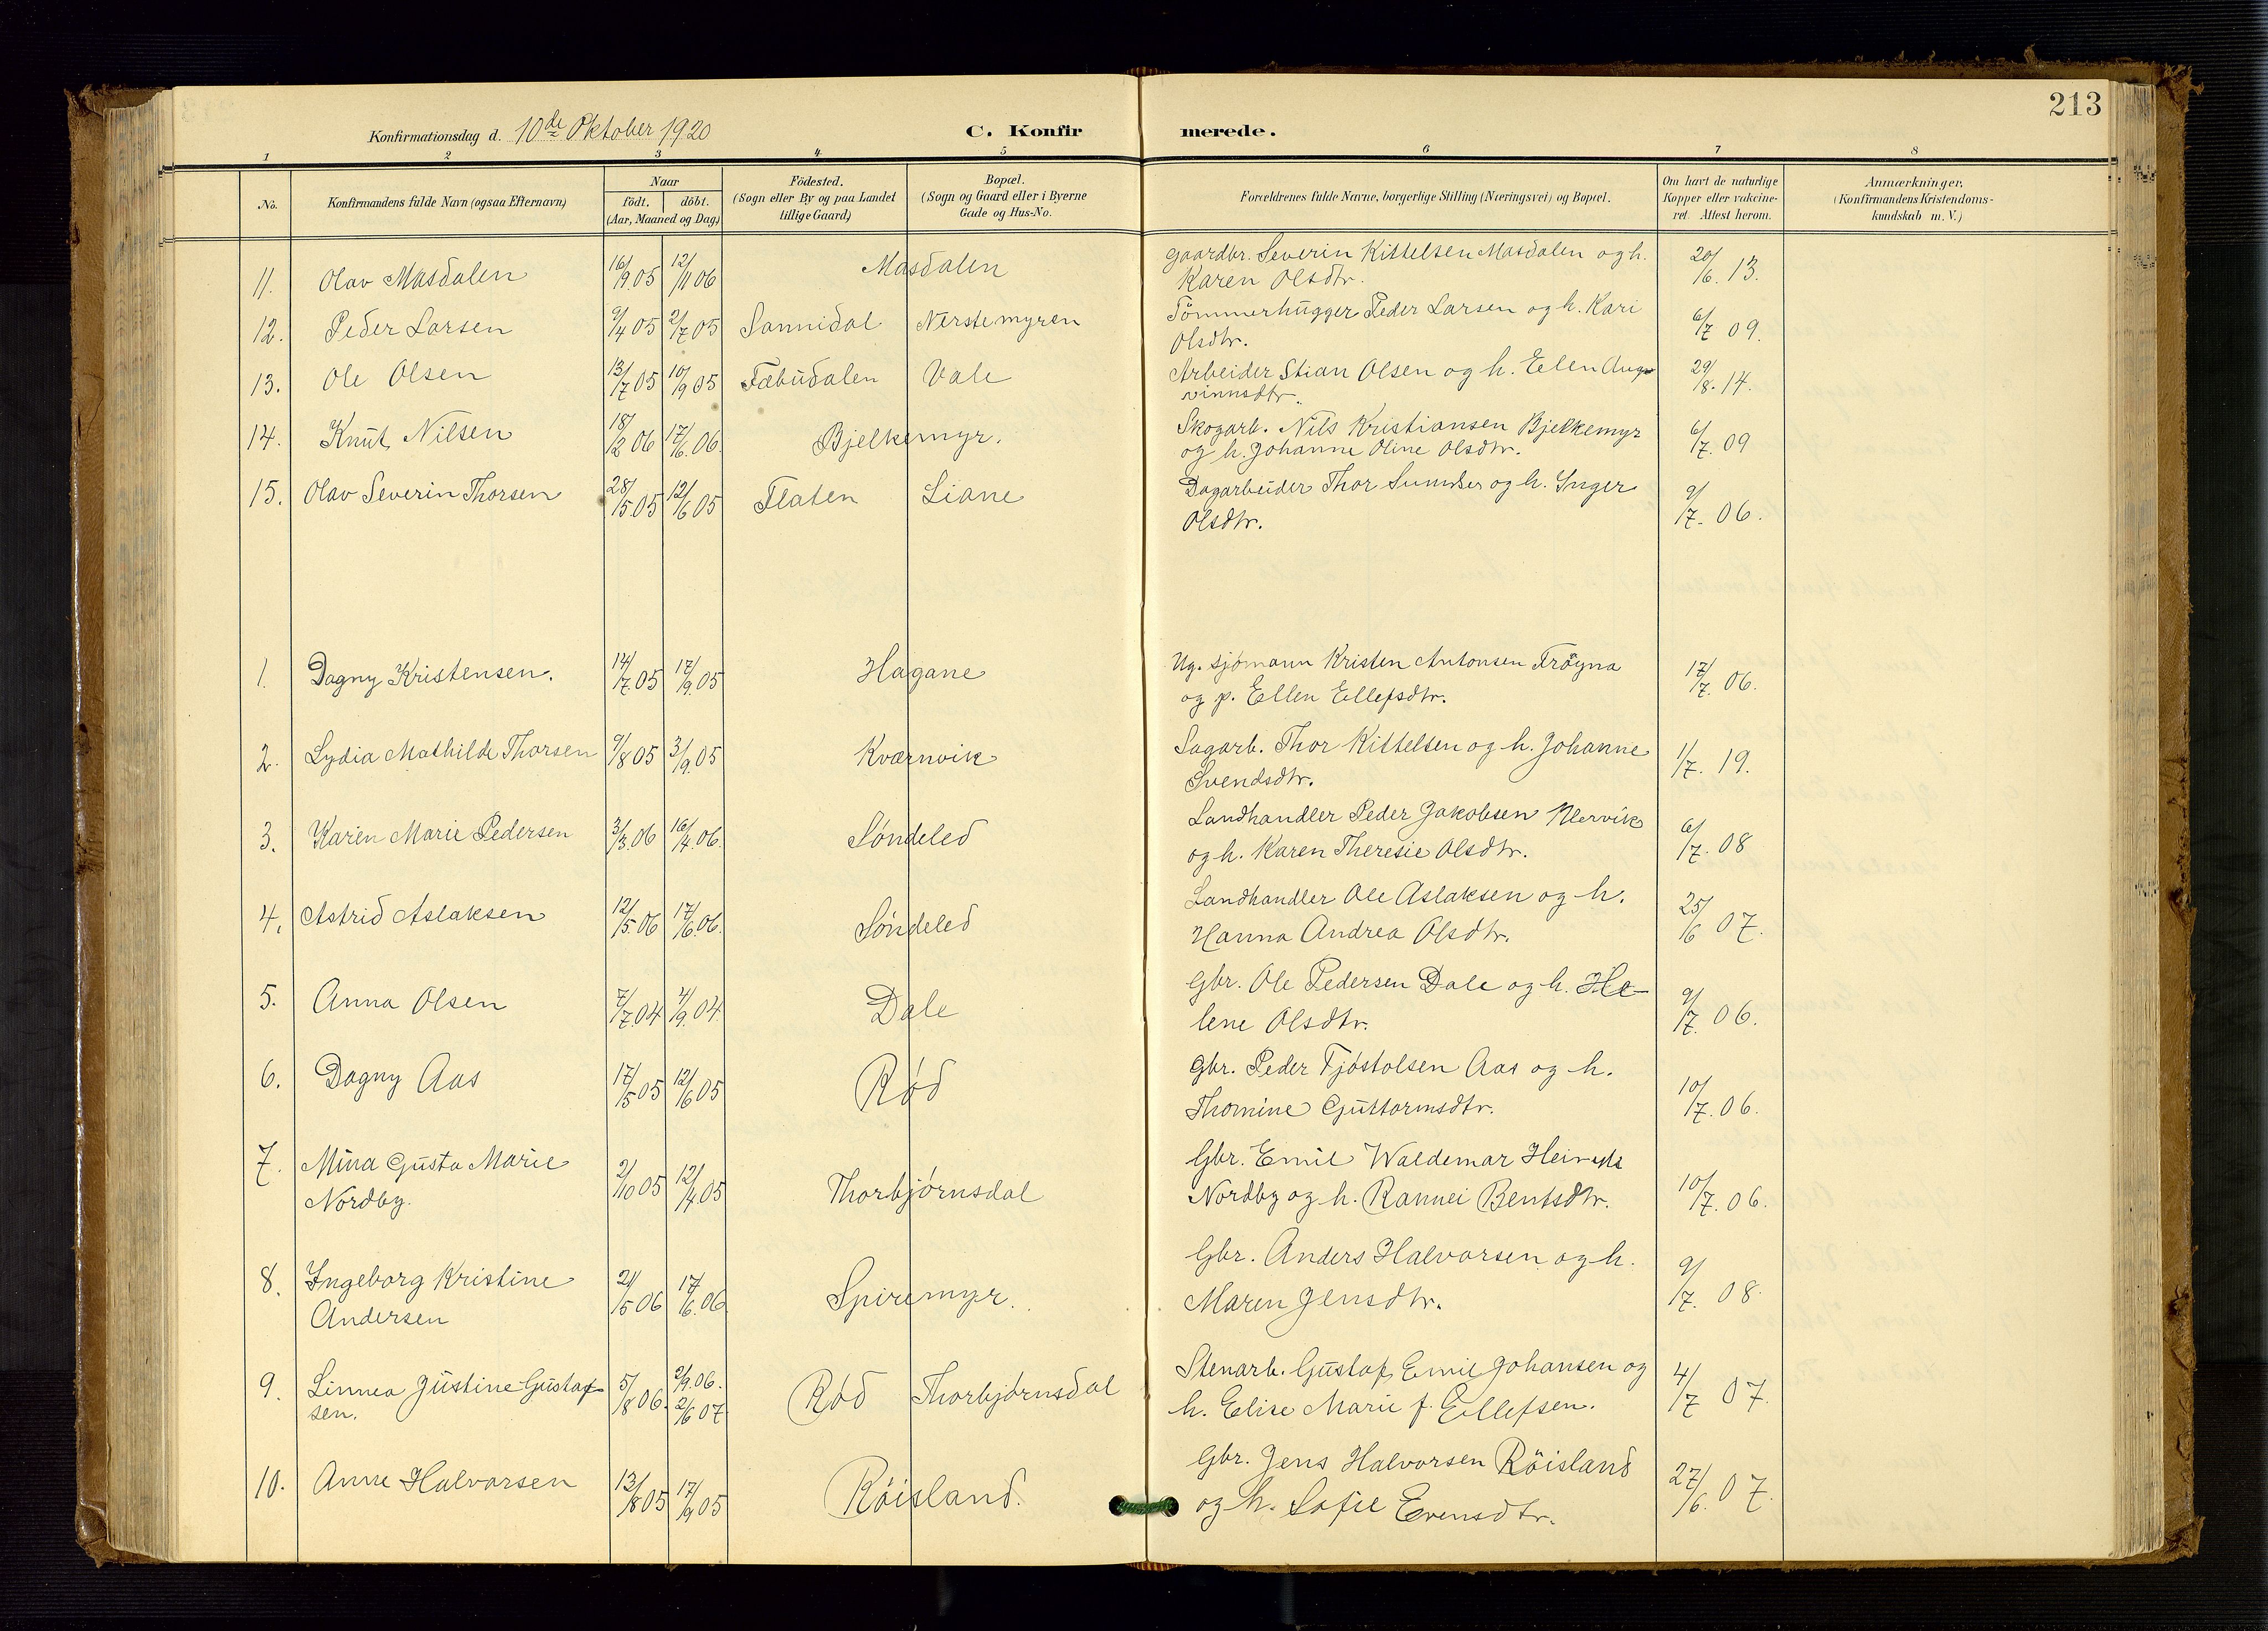 213
Konfirmationsdag d. 10de Oktober 1920
C. Konfirmerede.
1 2 3 4 5 6 7 8
No. Konfirmandens fulde Navn (ogsaa Efternavn) Naar födt. döbt. (Aar, Maaned og Dag) Födested. (Sogn eller By og paa Landet tillige Gaard) Bopæl. (Sogn og Gaard eller i Byerne Gade og Hus-No. Forældrenes fulde Navne, borgerlige Stilling (Næringsvei) og Bopæl. Om havt de naturlige Kopper eller vakcineret. Attest herom. Anmærkninger. (Konfirmandens Kristendomskundskab m. V.)
11. Olav Masdalen 16/9.05 12/11 06 Masdalen Gaardbr. Severin Kittelsen Masdalen og h. 20/6. 13.
Karen Olsdtr.
12. Peder Larsen 9/4 05 2/7 05 Sannidal Nerstemyren Tömmerhugger Peder Larsen og h. Kari 6/7 09.
Olsdtr.
13. Ole Olsen 13/7 05 10/9 05 Fæbudalen Vale Arbeider Stian Olsen og h. Ellen 29/8. 14.
14. Knut Nilsen 18/12 06 17/6.06. Bjelkemyr. Skogarb. Nils Kristiansen Bjelkemyr 6/7. 09
og h. Johanne Oline Olsdtr.
15. Olav Severin Thorsen 28/5.05 12/6 05 Flaten Liane Dagarbeider Thor og h. Inger 9/7. 06.
Olsdtr.
1. Dagny Kristensen. 14/7.05 17/9.05 Hagane Ug. sjømann Kristen Antonsen Tröyna 17/7. 06.
og p. Ellen Ellefsdtr.
2. Lydia Mathilde Thorsen 9/8 05 3/9.05 Kværnvik Sagarb. Thor Kittelsen og h. Johanne 1/7. 19.
Svendsdtr.
3. Karen Marie Pedersen 3/3.06 16/4.06. Søndeled Landhandler Peder Jakobsen Nervik 6/7. 08
og h. Karen Theresie Olsdtr.
4. Astrid Aslaksen 12/5.06 17/6.06. Søndeled Landhandler Ole Aslaksen og h. 25/6 07.
Hanna Andrea Olsdtr.
5. Anna Olsen 7/7.04 4/9.04. Dale Gbr. Ole Pedersen Dale og h. He-
lene Olsdtr. 9/7. 06.
6. Dagny Aas 17/5 05 12/6 05 Rød Gbr. Peder Tjøstolsen Aas og h. 10/7. 06.
Thomine Guttormsdtr.
7. Mina Gusta Marie 2/10 05 12/4.05 Thorbjørnsdal Gbr. Emil Waldemar 10/7. 06.
Nordby. Nordby og h. Rannei Bentsdtr.
8. Ingeborg Kristine 21/5 06 17/6.06 Spiremyr. Gbr. Anders Halvorsen og h. 9/7. 08.
Andersen Maren Jensdtr.
9. Linnea Justine Gustaf- 5/8 06. 2/9.06. Rød Thorbjørnsdal Stenarb. Gustaf Emil Johansen og 4/7 07.
sen. 2/6 07 h. Elise Marie f. Ellefsen.
10. Anne Halvorsen 13/8 05 17/9 05 Röisland. Gbr. Jens Halvorsen Röisland 27/6. 07.
og h. Sofie Evensdtr.